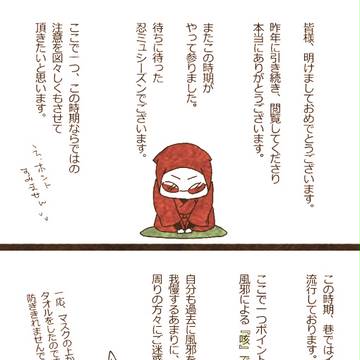 皆様、明けましておめでとうございます。
昨年に引き続き、閲覧してくださり
本当にありがとうございます。
またこの時期が
やって参りました。
待ちに待った
忍ミュシーズンでございます。
ここで一つ、この時期ならではの
注意を図々しくもさせて
頂きたいと思います。
うへホント
すみません
この時期、巷では
流行しております。
ここで一つポイン
風邪による『咳』で
自分も過去に風邪を
我慢するあまりに、
周りの方々にご迷
一応、マスクの上か
タオルをしたので
防ぎきれませんで